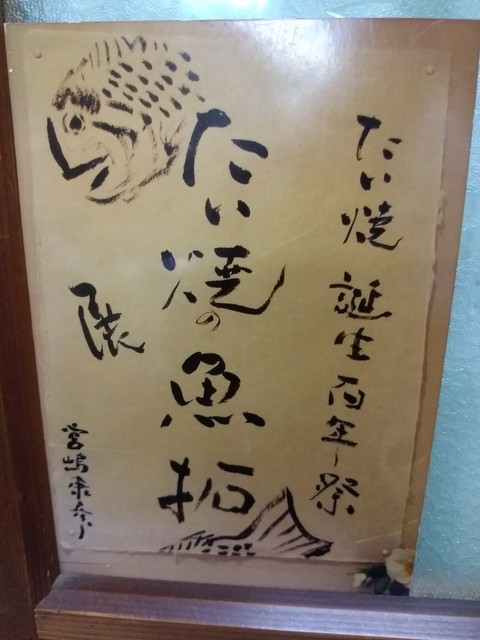 たい焼 誕生百年祭
たい焼の魚拓
展
宮嶋康奈